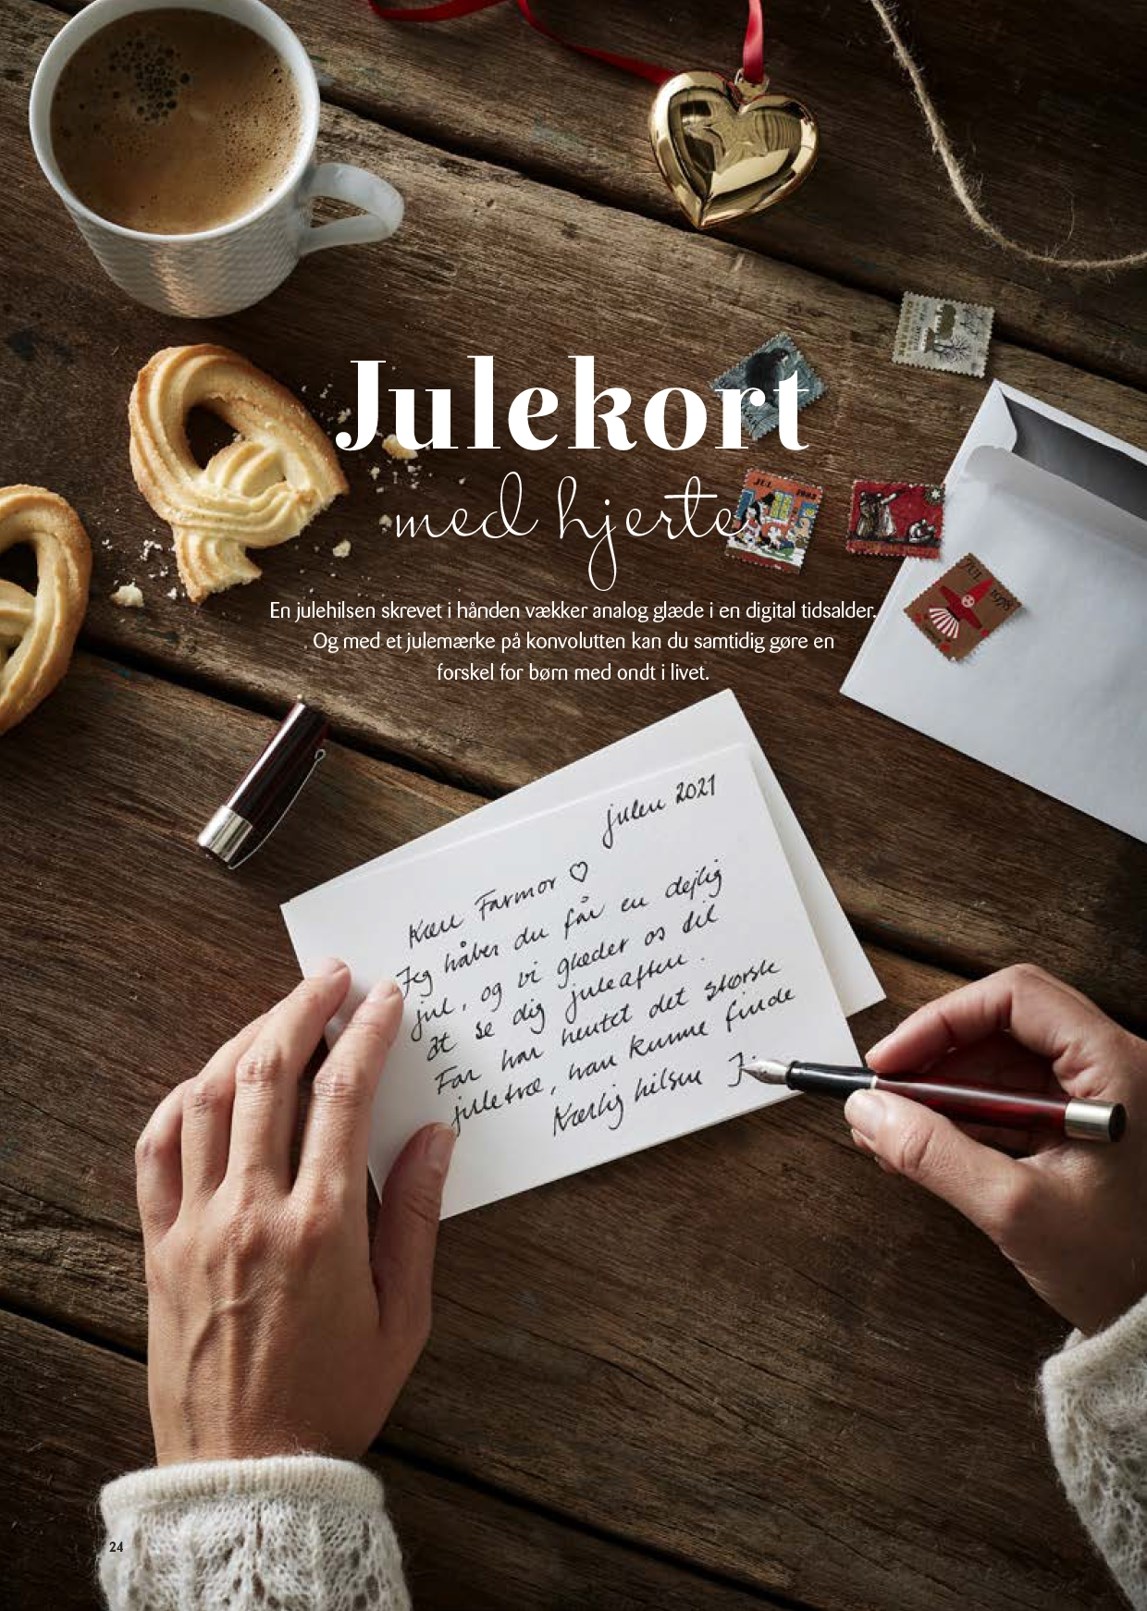 Julekort
med hjerte
En julehilsen skrevet i hånden vækker analog glæde i en digital tidsalder.
Og med et julemærke på konvolutten kan du samtidig gøre en
forskel for børn med ondt i livet.
JUL 1983
JUL 1978
julen 2021
Kære Farmor ♡
Jeg håber du får en dejlig
jul, og vi glæder os til
at se dig juleaften.
Far har hentet det største
juletræ, han kunne finde
Kærlig hilsen J
24